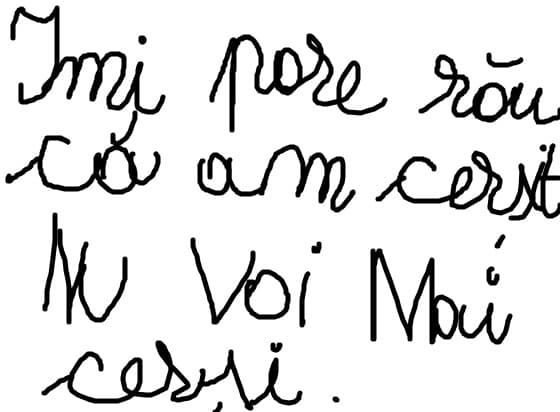 Imi pare rău
că am cersit
Nu Voi Mai
cerși.